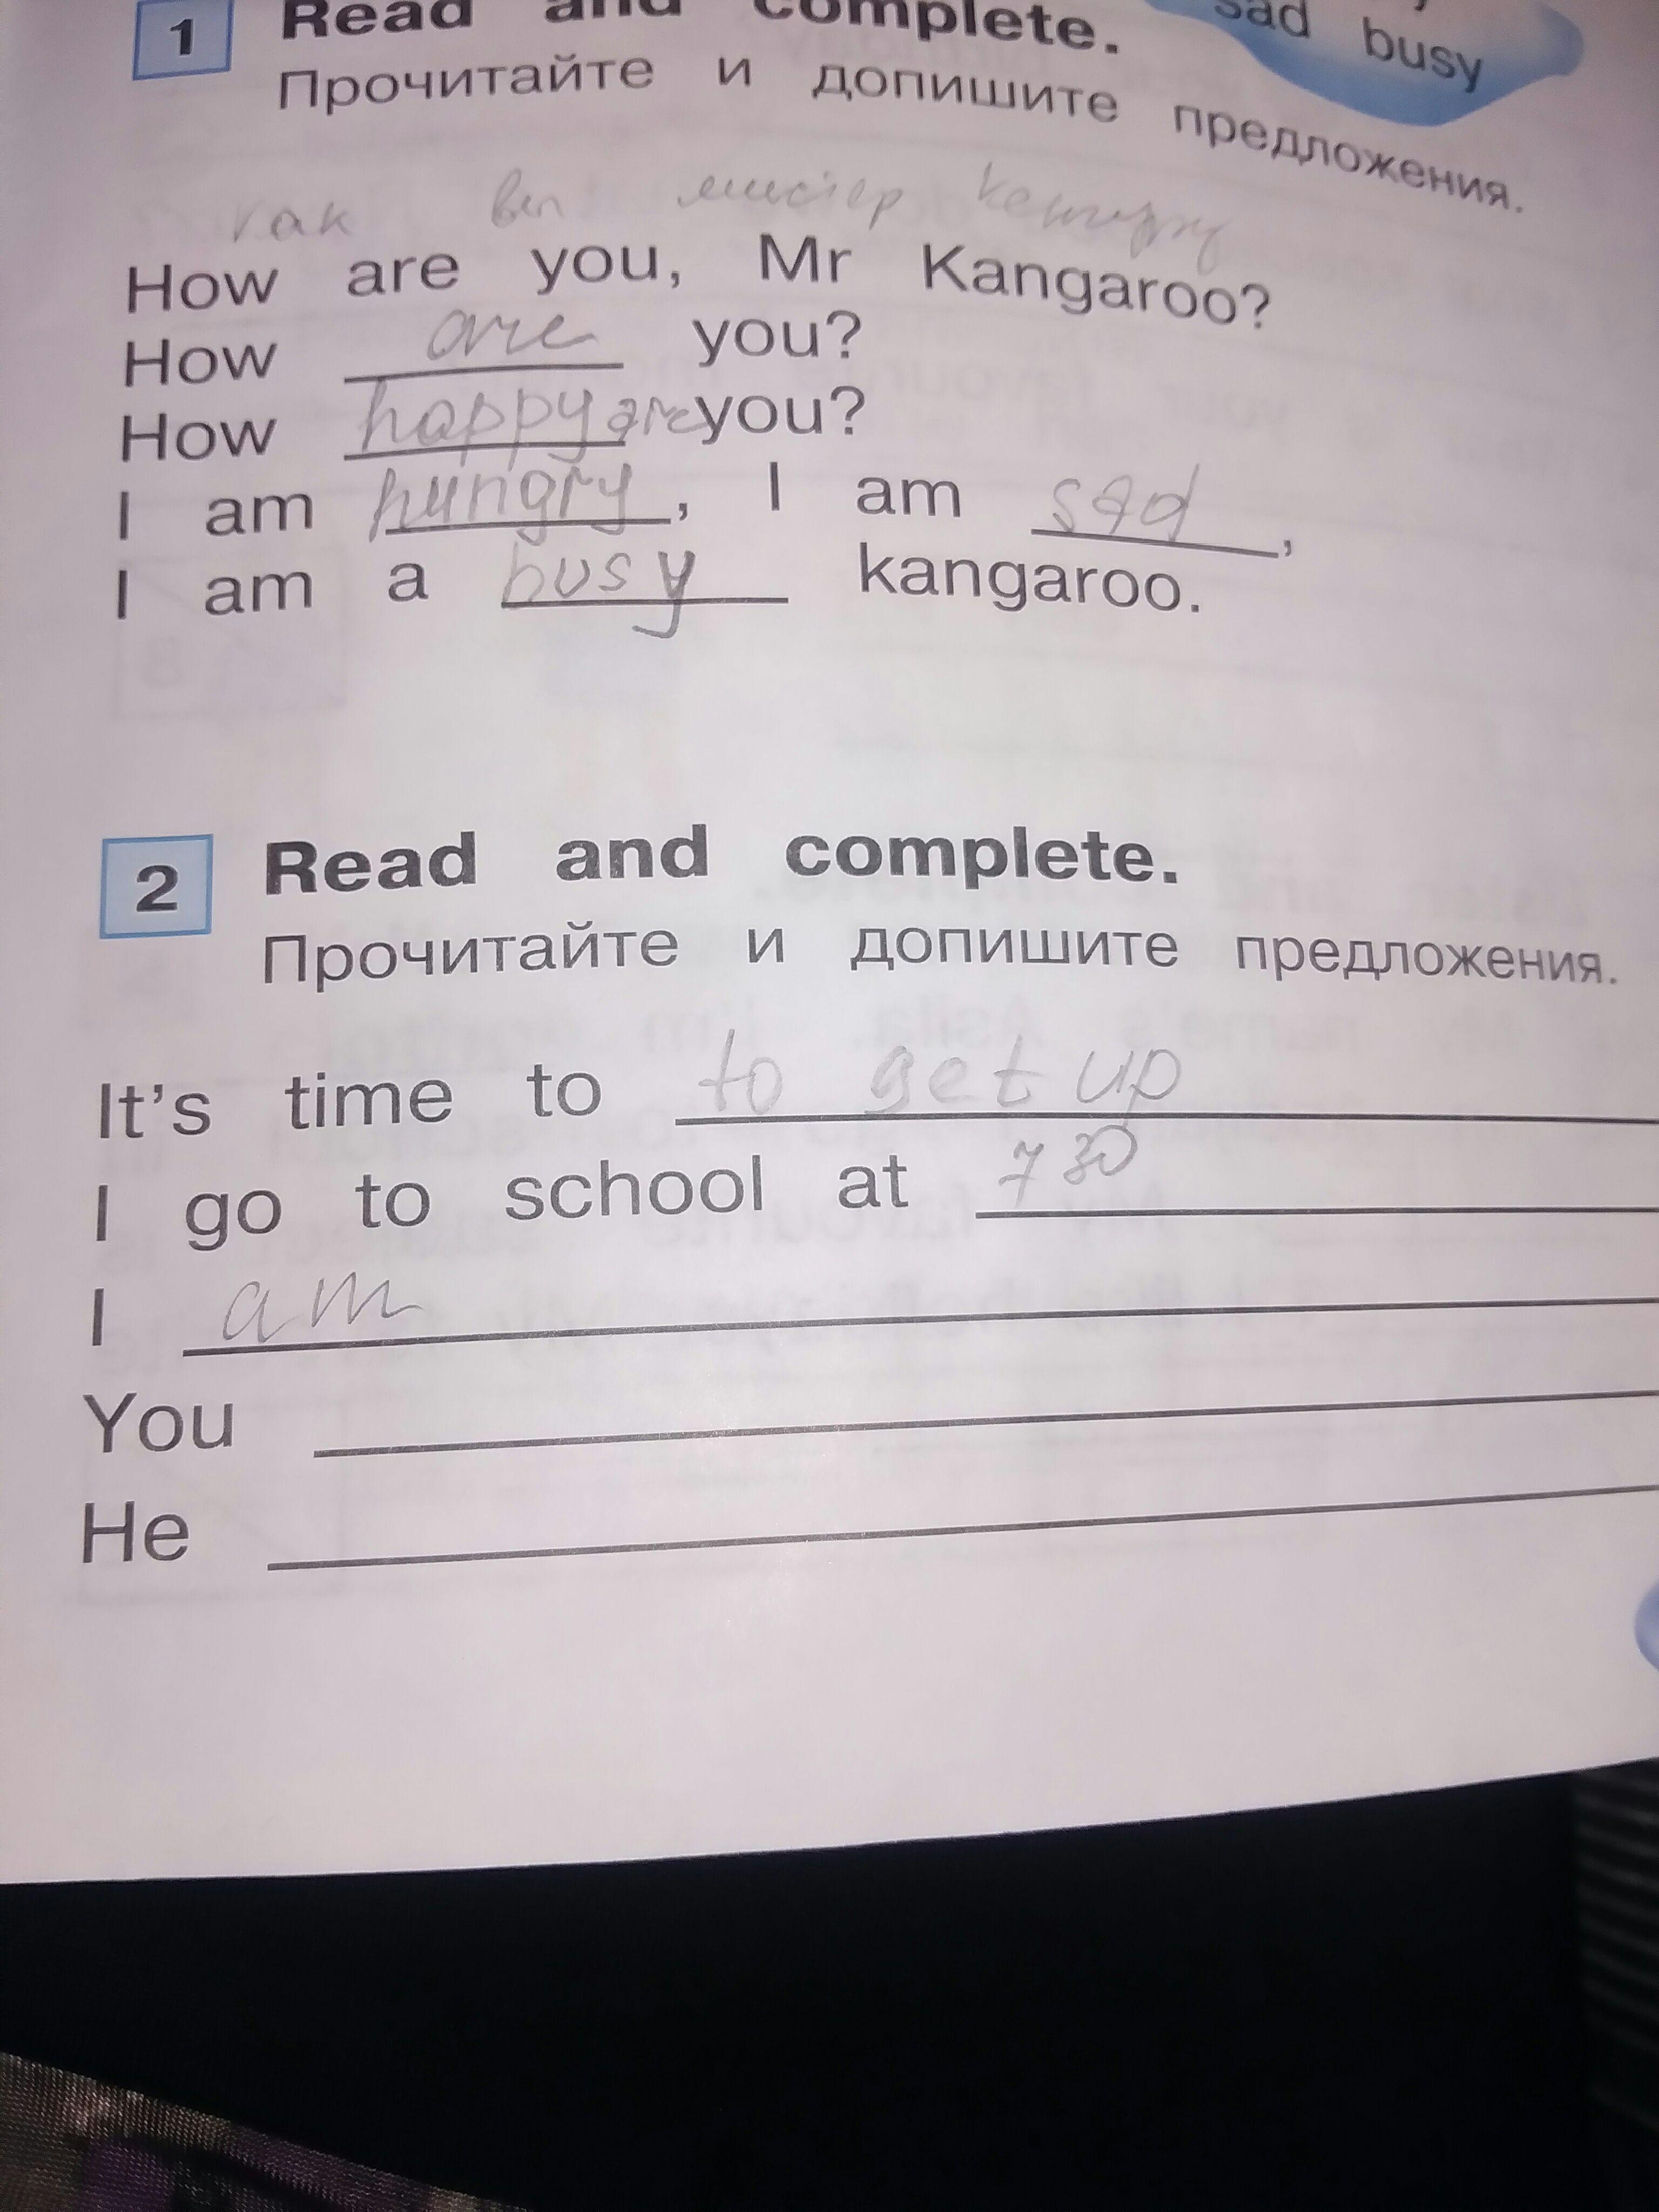 1 Read and complete.
sad busy
Прочитайте и допишите предложения.
как вы мистер кенгуру
How are you, Mr Kangaroo?
How are you?
How happy are you?
I am hungry, I am sad,
I am a busy kangaroo.
2 Read and complete.
Прочитайте и допишите предложения.
It's time to to get up
I go to school at 7 30
I am
You
He